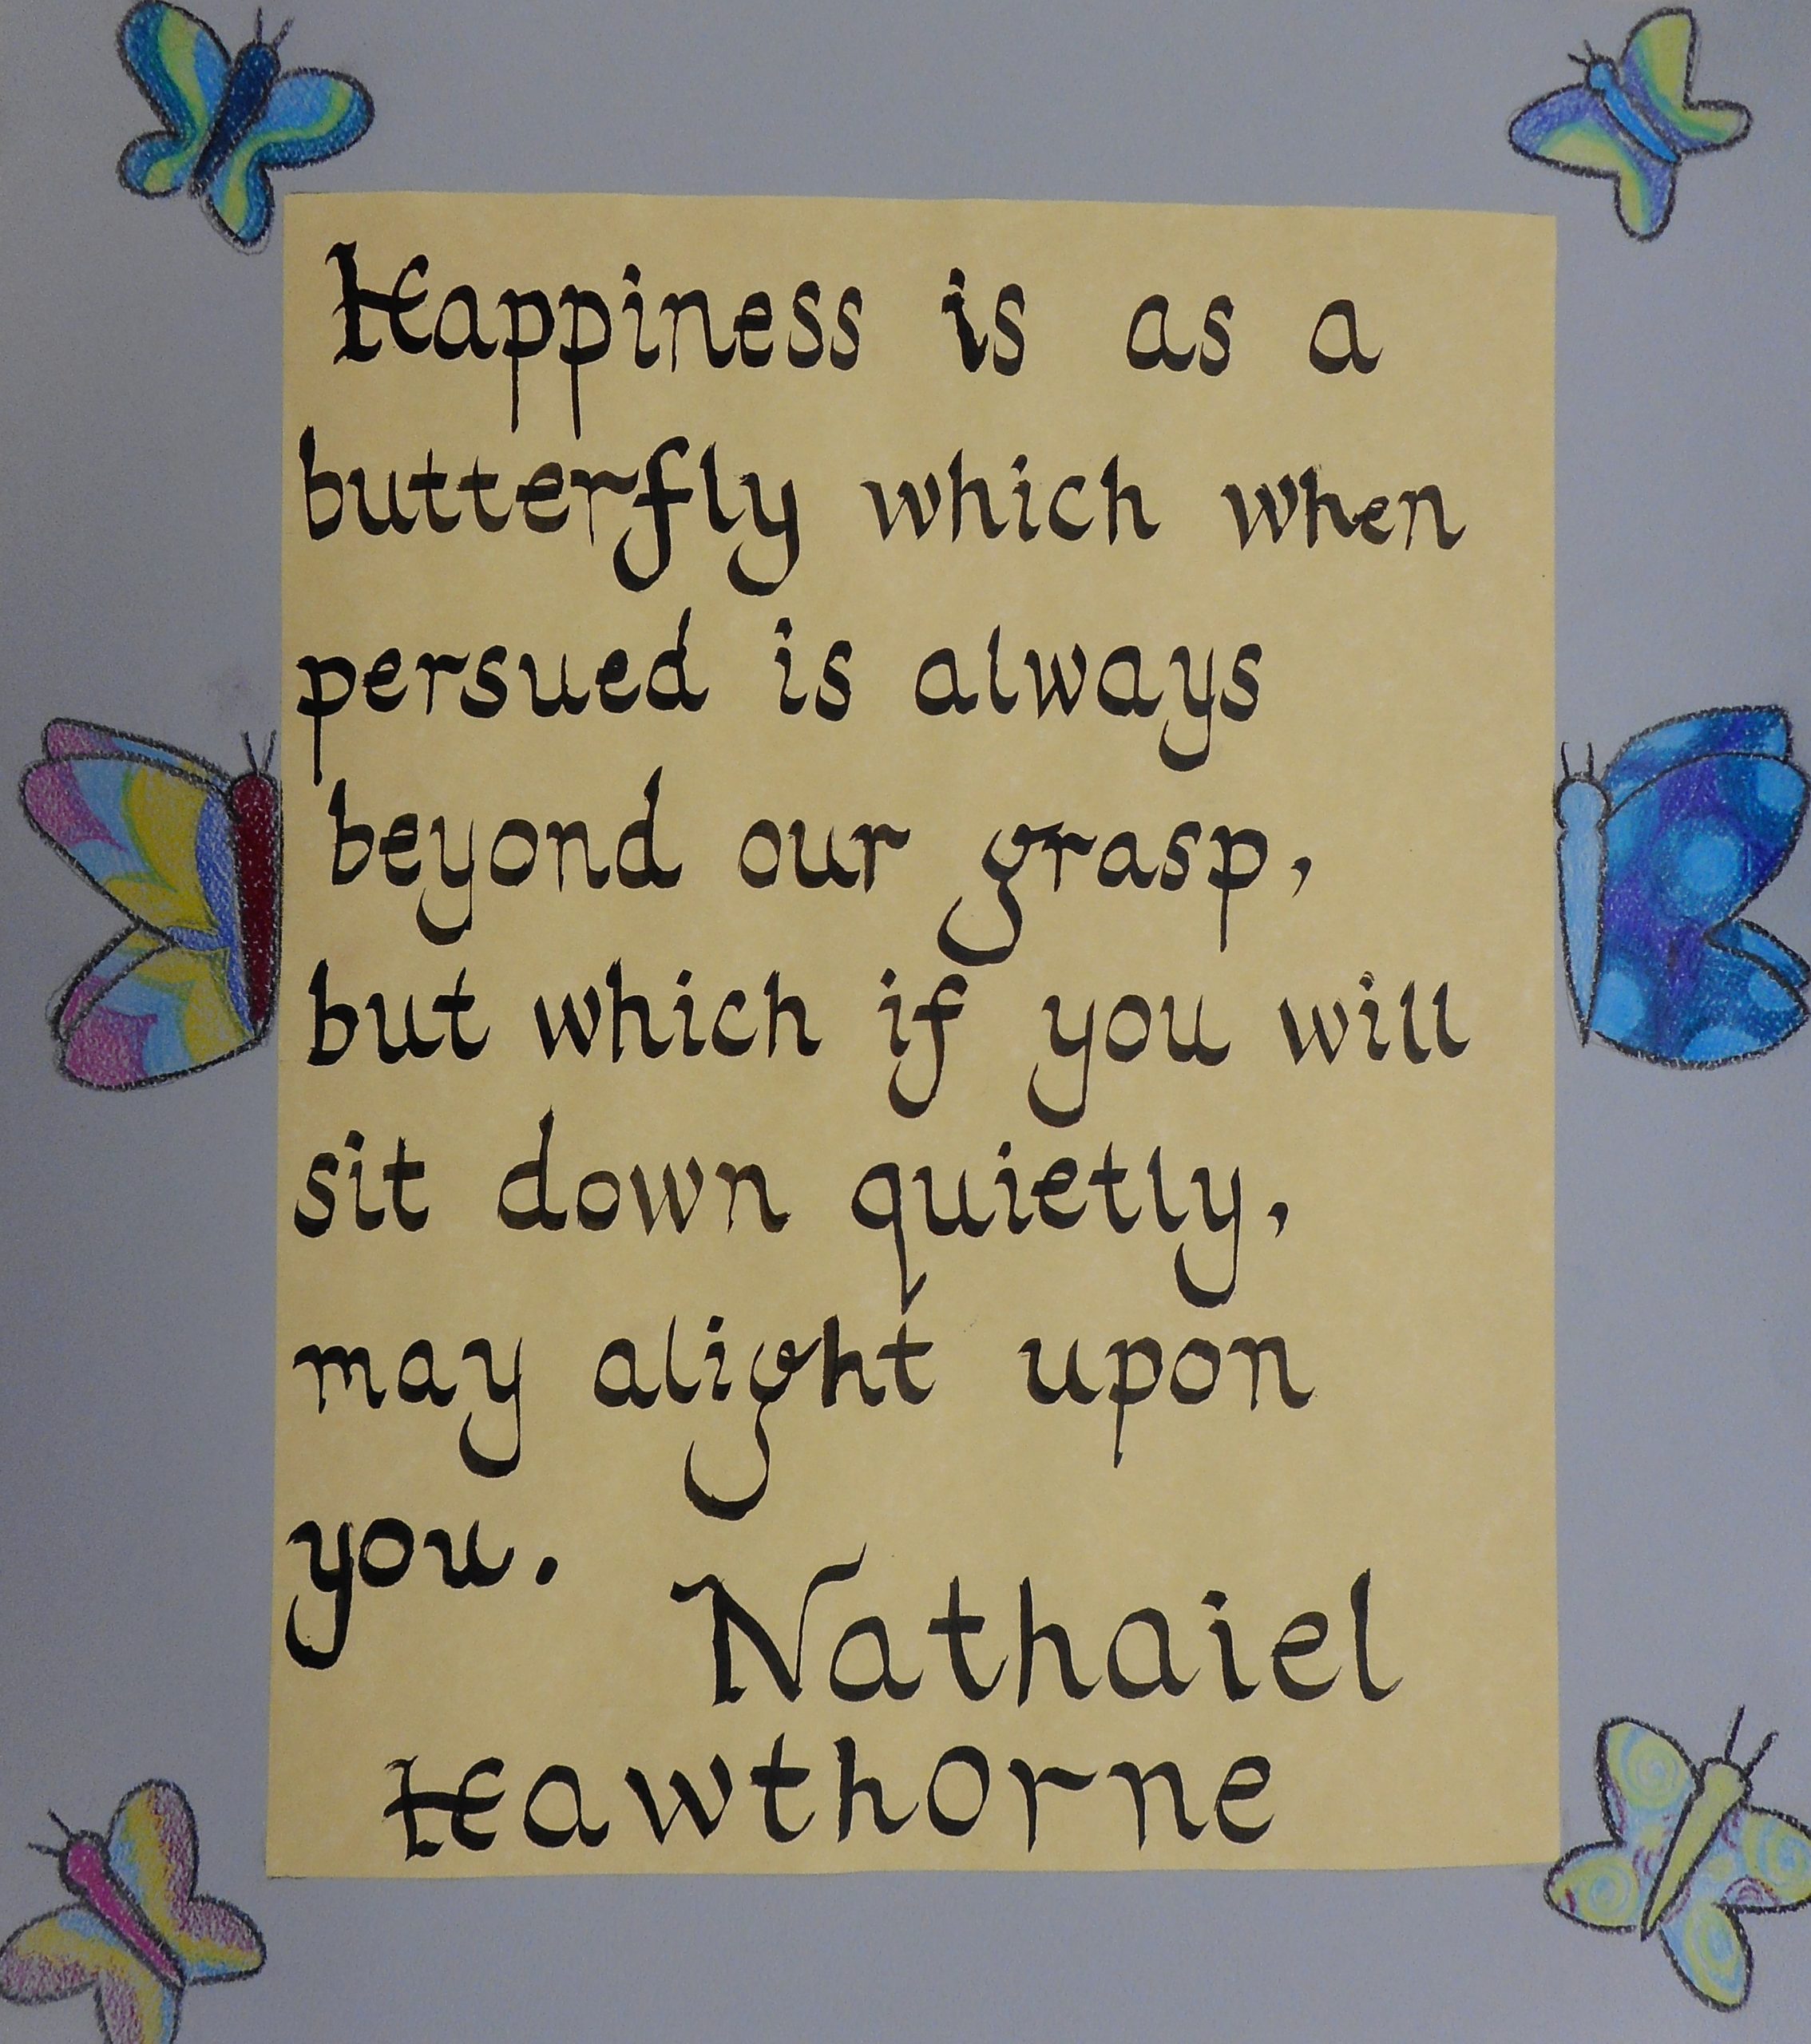 Happiness is as a
butterfly which when
persued is always
beyond our grasp,
but which if you will
sit down quietly,
may alight upon
you.
Nathaiel
Hawthorne